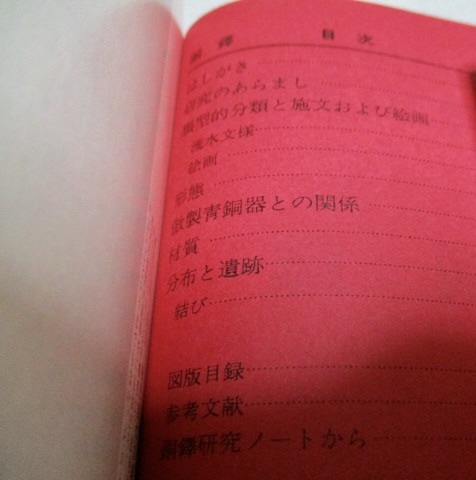 銅鐸 目次
はしがき
研究のあらまし
類型的分類と施文および絵画
流水文様
絵画
形態
倣製青銅器との関係
材質
分布と遺跡
結び
図版目録
参考文献
銅鐸研究ノートから